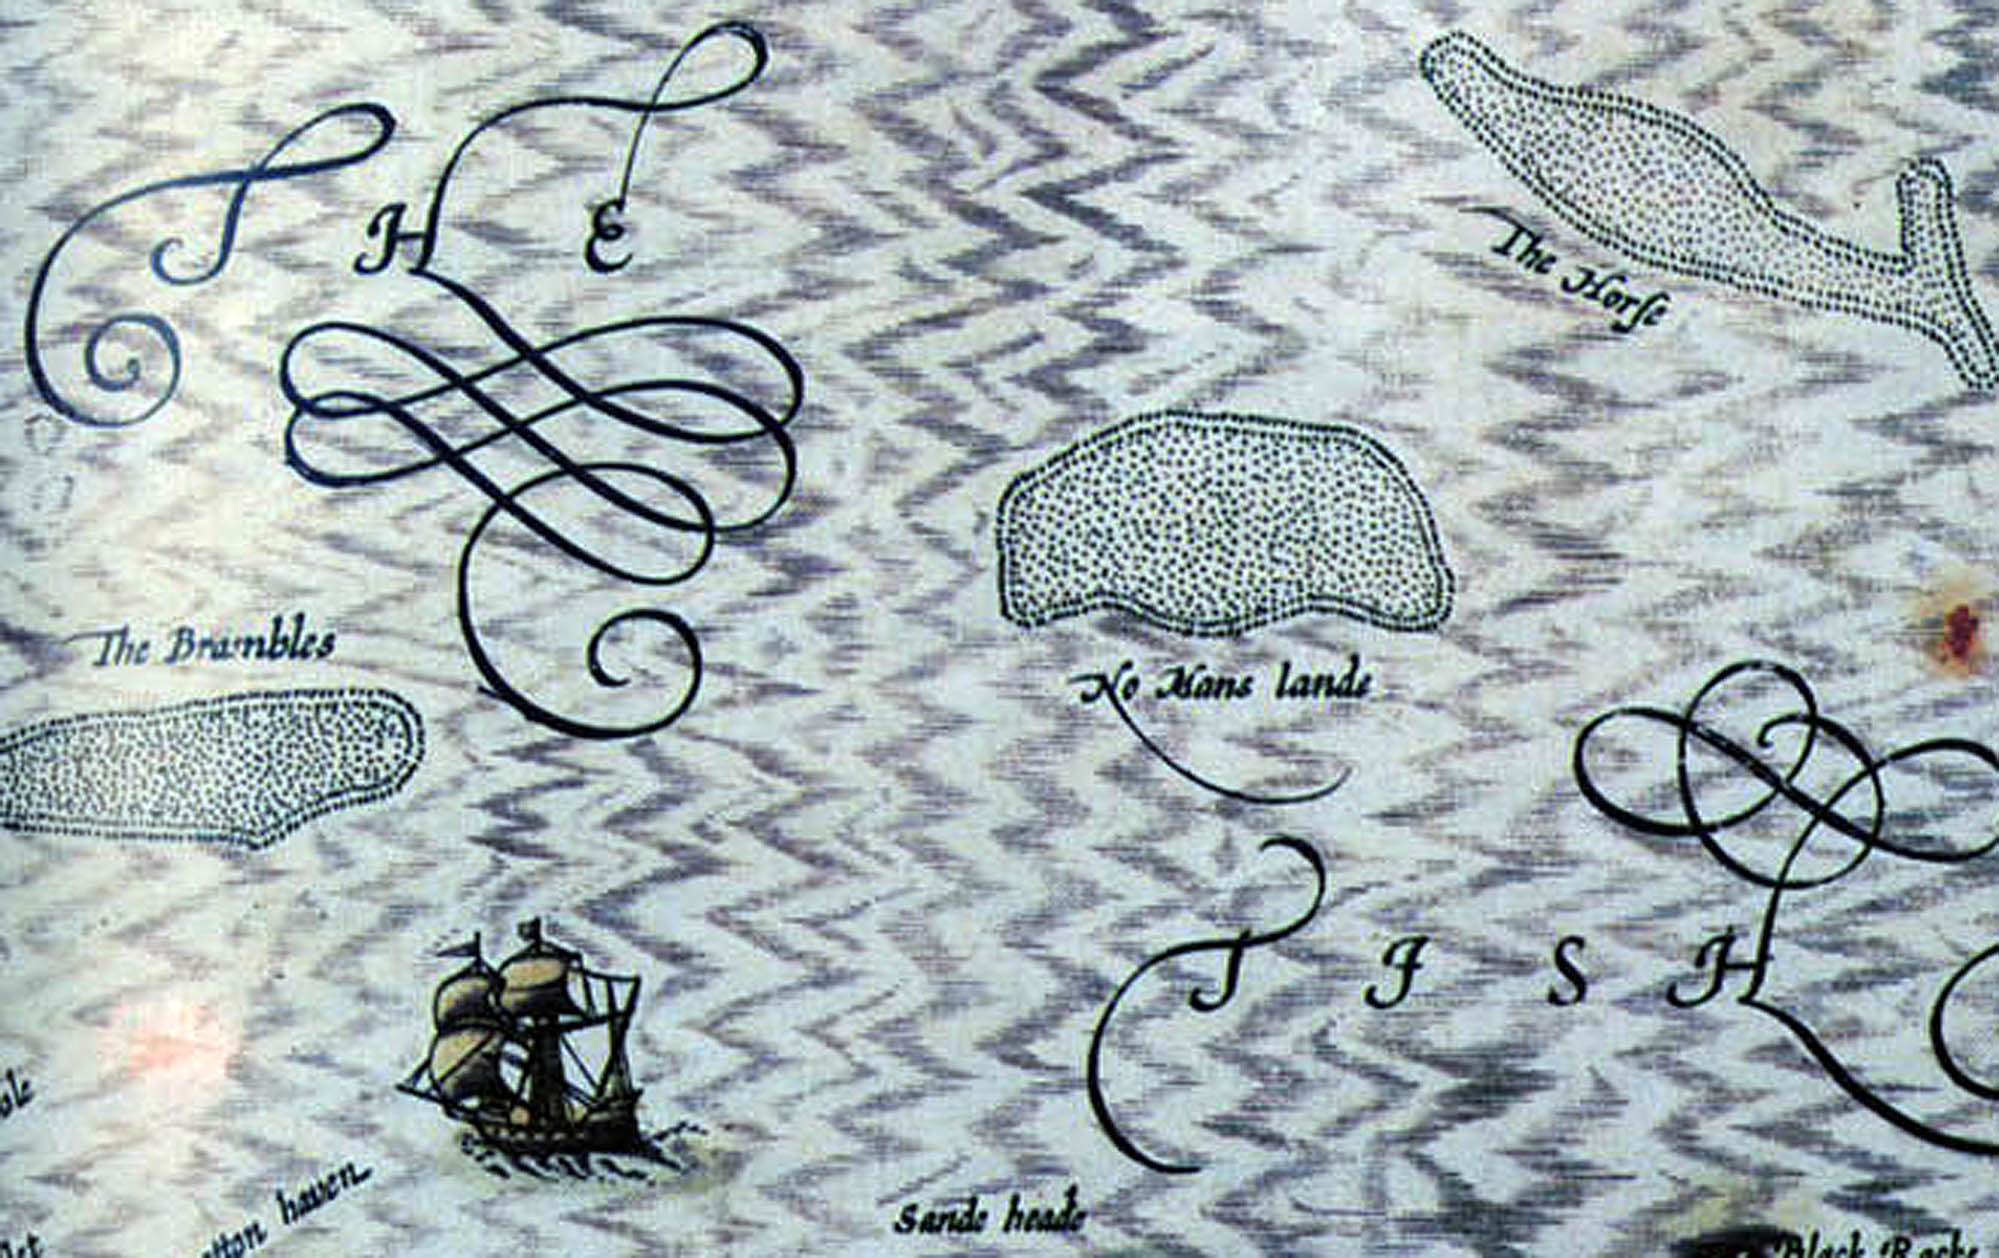 THE
The Horſe
The Brambles
No Mans lande
TISH
haven
Sande heade
Black Rocke